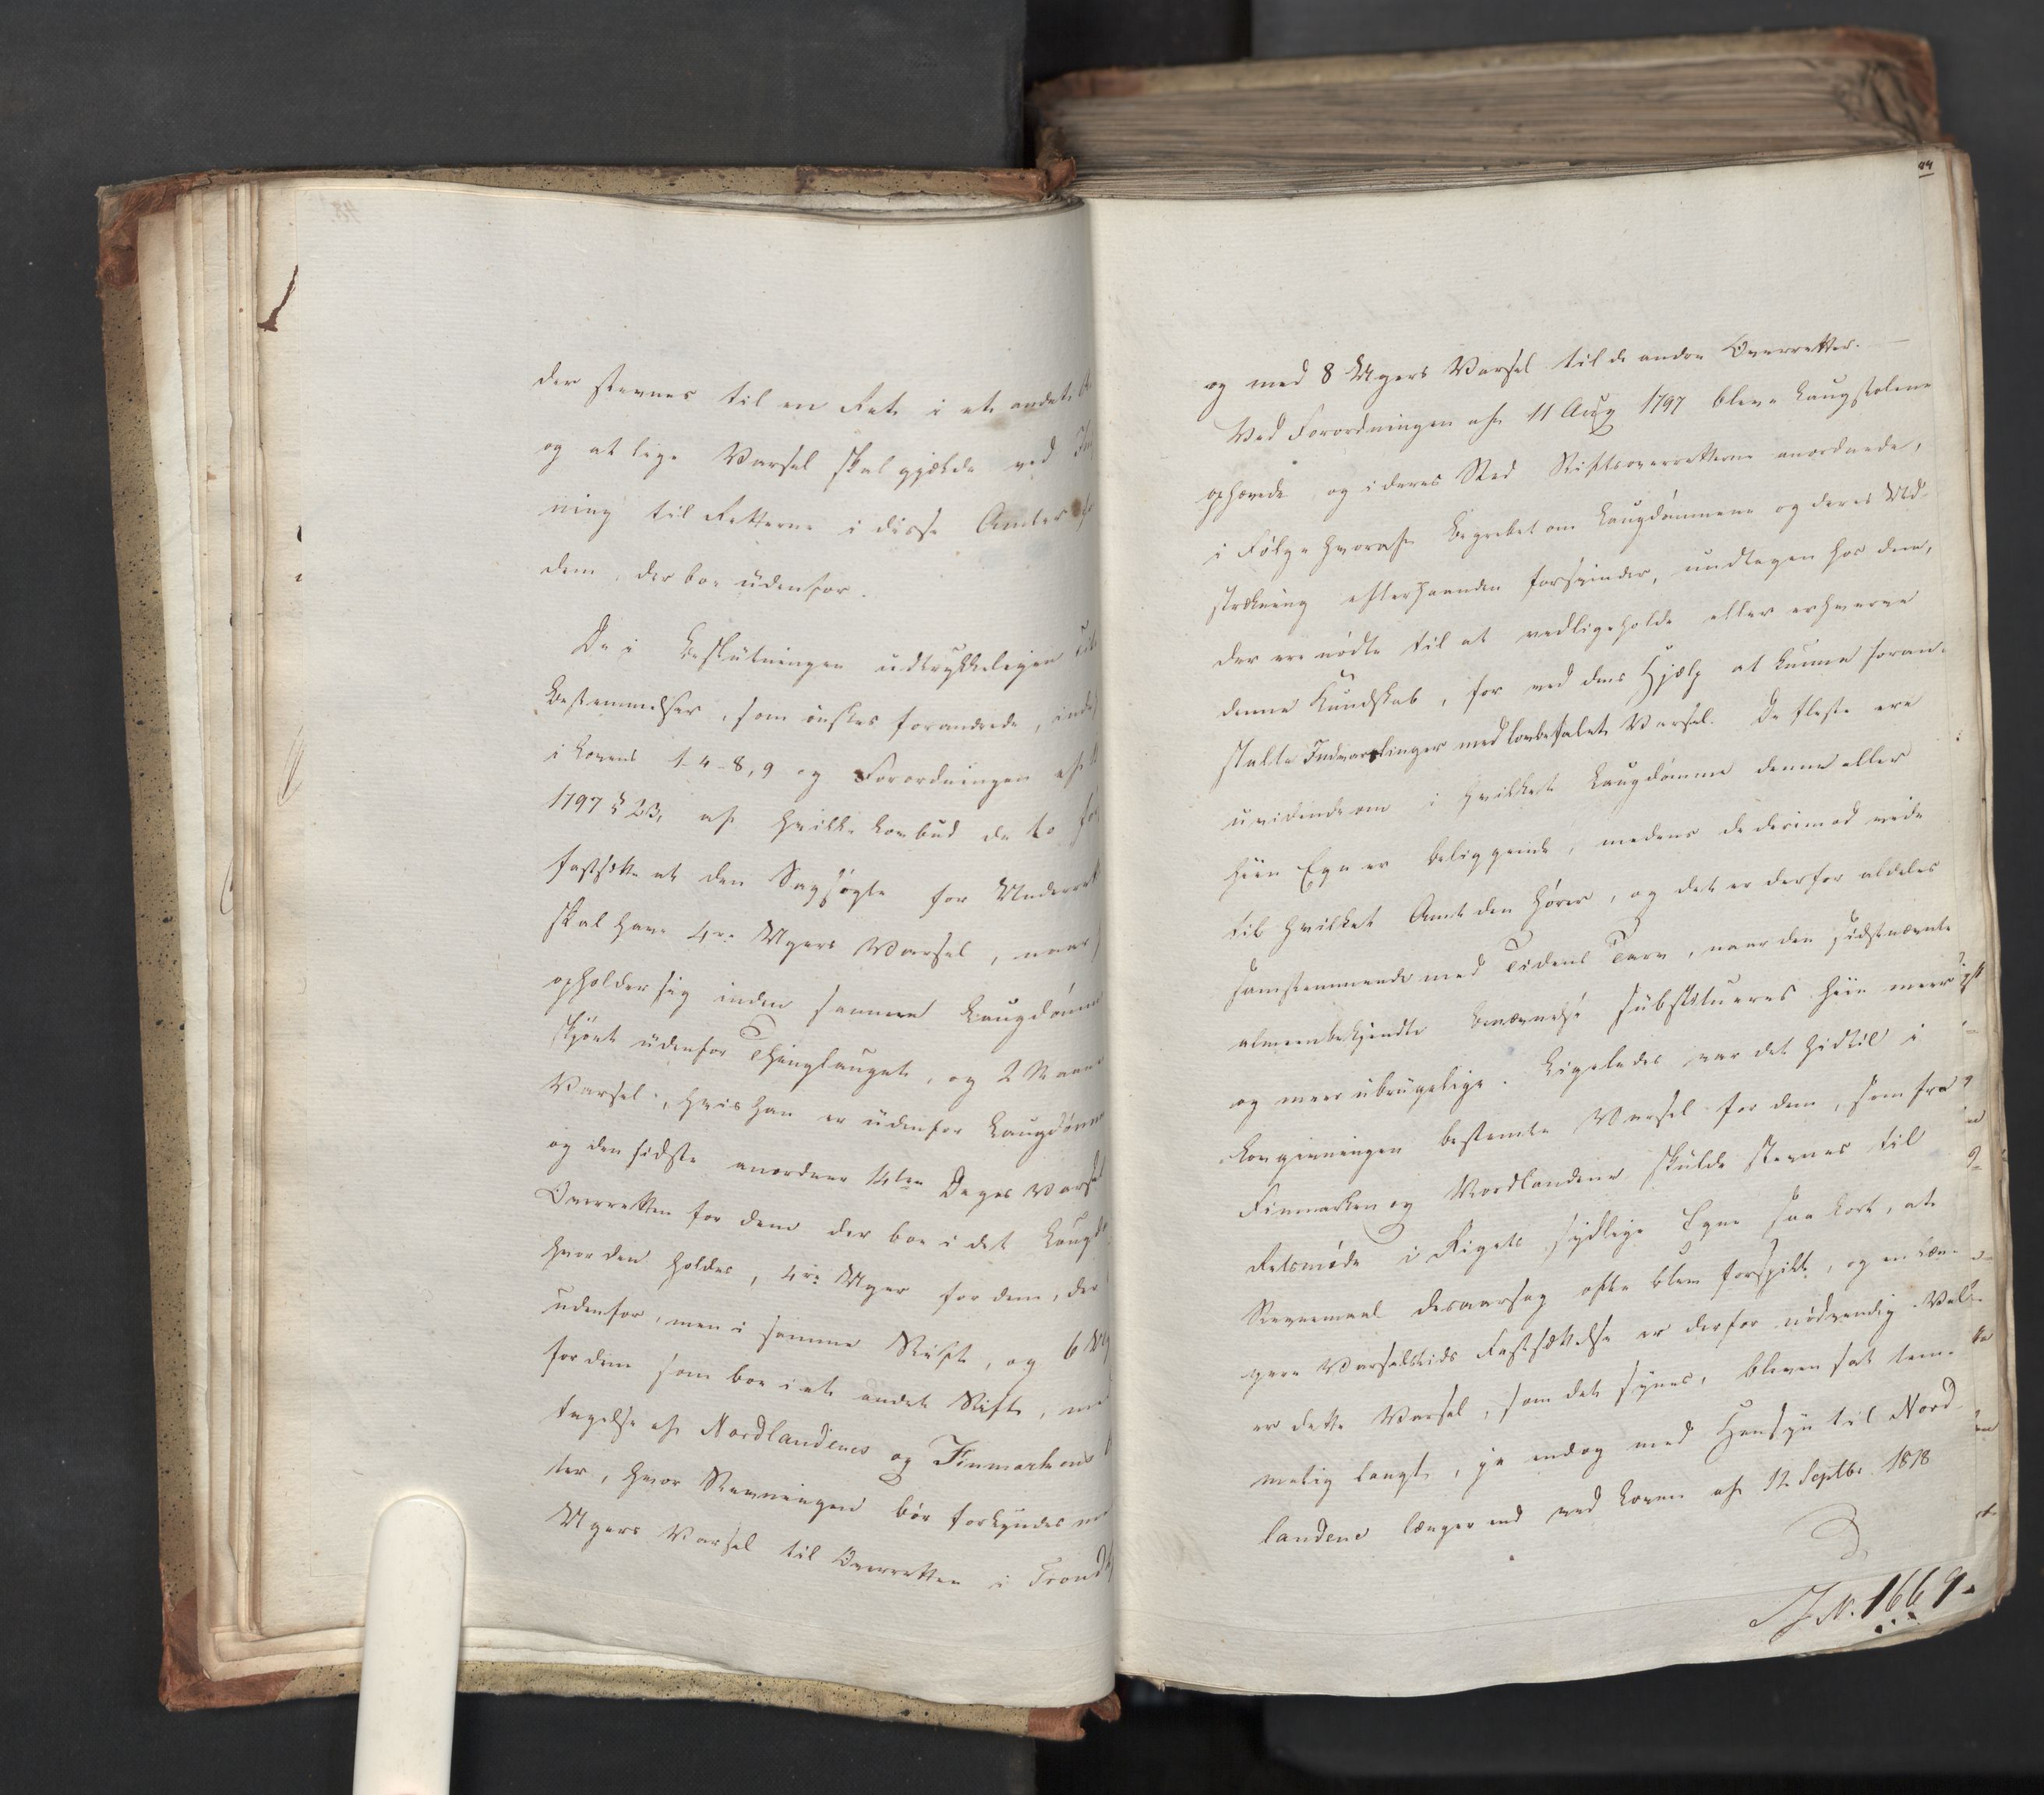 der stevnes til en Ret i et andet
og at lige Varsel skal gjælde ved
ning til Retterne i disse Amter
dem, der boe udenfor.
De i Beslutningen udtrykkeligen
Bestemmelser, som ønskes forandrede,
i Lovens 1-4-8,9 og Forordningen af
1797 § 23, af hvilke Lovbud de to
fastsætte at den Sagsøgte for Underret
skal have 4re Ugers Varsel, naar
opholder sig inden samme Laugdømme
skjønt udenfor Thinglauget, og 2 Maane
Varsel, hvis han er udenfor Laugdømme
og den sidste anordner 14ten Dages Varsel
Overretten for dem der boe i det Laugd
hvor den holdes, 4re Uger for dem, der
udenfor, men i samme Stift, og 6
for dem som boe i et andet Stift, med
tagelse af Nordlandenes og Finmarkens
ter, hvor Stevningen bør forkyndes
Ugers Varsel til Overretten i Trondh
44
og med 8 Ugers Varsel til de andre Overretter.
Ved Forordningen af 11 Aug 1797 bleve Laugstolene
ophævede og i deres Sted Stiftsoverretterne anordnede,
i Følge hvoraf Begrebet om Laugdømmene og deres Ud-
strækning efterhaanden forsvinder, undtagen hos dem,
der ere nødte til at vedligeholde eller erhverve
denne Kundskab, for ved dens Hjælp at kunne foran-
stalte Indvarslinger med lovbefalet Varsel. De fleste ere
uvidende om i hvilket Laugdømme denne eller
hiin Egn er beliggende, medens de derimod vide
til hvilket Amt den hører, og det er derfor aldeles
samstemmende med Tidens Tarv, naar den sidstnævnte
almeenbekjendte Benævnelse substitueres hiin meer
og meer ubrugelige. Ligeledes var det hidtil i
Lovgivningen bestemte Varsel for dem, som fra
Finmarken og Nordlandene skulde stevnes til
Retsmøde i Rigets sydlige Egne saa kort, at
Stevnemaal desaarsag ofte blev forspildt, og en læn-
gere Varselstids Fastsættelse er derfor nødvendig. Vel
er dette Varsel, som det synes, bleven sat tem-
melig langt, ja endog med Hensyn til Nord-
landene længer end ved Loven af 12 Septbr 1818
J.N. 1669.